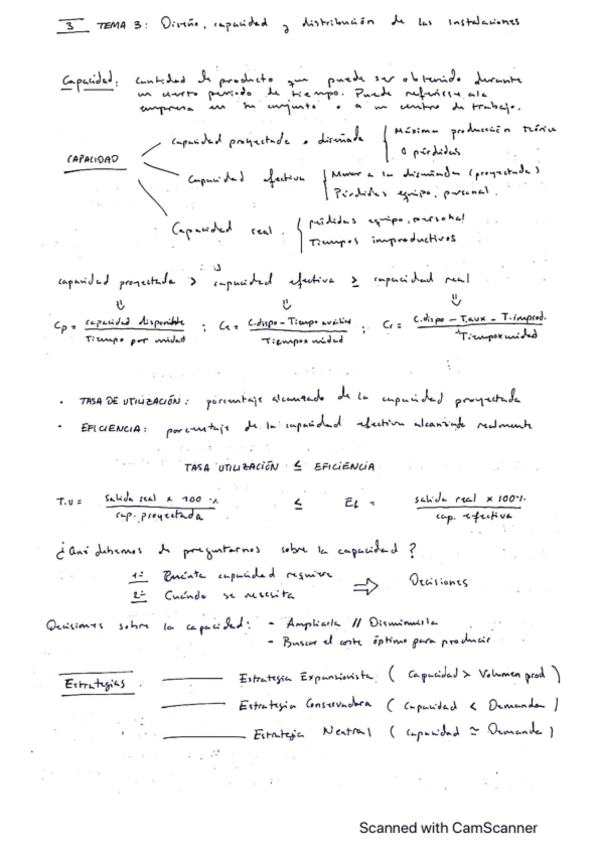 3 TEMA 3: Diseño, capacidad y distribución de las instalaciones
Capacidad: cantidad de producto que puede ser obtenido durante
un cierto periodo de tiempo. Puede referirse a la
empresa en su conjunto o a un centro de trabajo.
CAPACIDAD
capacidad proyectada o diseñada
Máxima producción teórica
0 pérdidas
Capacidad efectiva
Menor a la diseñada (proyectada)
Pérdidas equipo, personal.
Capacidad real.
pérdidas equipo, personal
Tiempos improductivos
capacidad proyectada > capacidad efectiva ≥ capacidad real
Cp = capacidad disponible / Tiempo por unidad ; Ce = C.dispo - Tiempo auxiliar / Tiempo x unidad ; Cr = C.dispo - T.aux - T.improd. / Tiempo x unidad
· TASA DE UTILIZACIÓN: porcentaje alcanzado de la capacidad proyectada
· EFICIENCIA: porcentaje de la capacidad efectiva alcanzada realmente
TASA UTILIZACIÓN ≤ EFICIENCIA
T.U = salida real x 100 % / cap. proyectada ≤ Ef = salida real x 100% / cap. efectiva
¿Qué debemos de preguntarnos sobre la capacidad?
1º Cuánta capacidad requiere
2º Cuándo se necesita
⇒ Decisiones
Decisiones sobre la capacidad: - Ampliarla // Disminuirla
- Buscar el coste óptimo para producir
Estrategias
Estrategia Expansionista (Capacidad > Volumen prod)
Estrategia Conservadora (Capacidad < Demanda)
Estrategia Neutral (capacidad ≃ Demanda)
Scanned with CamScanner